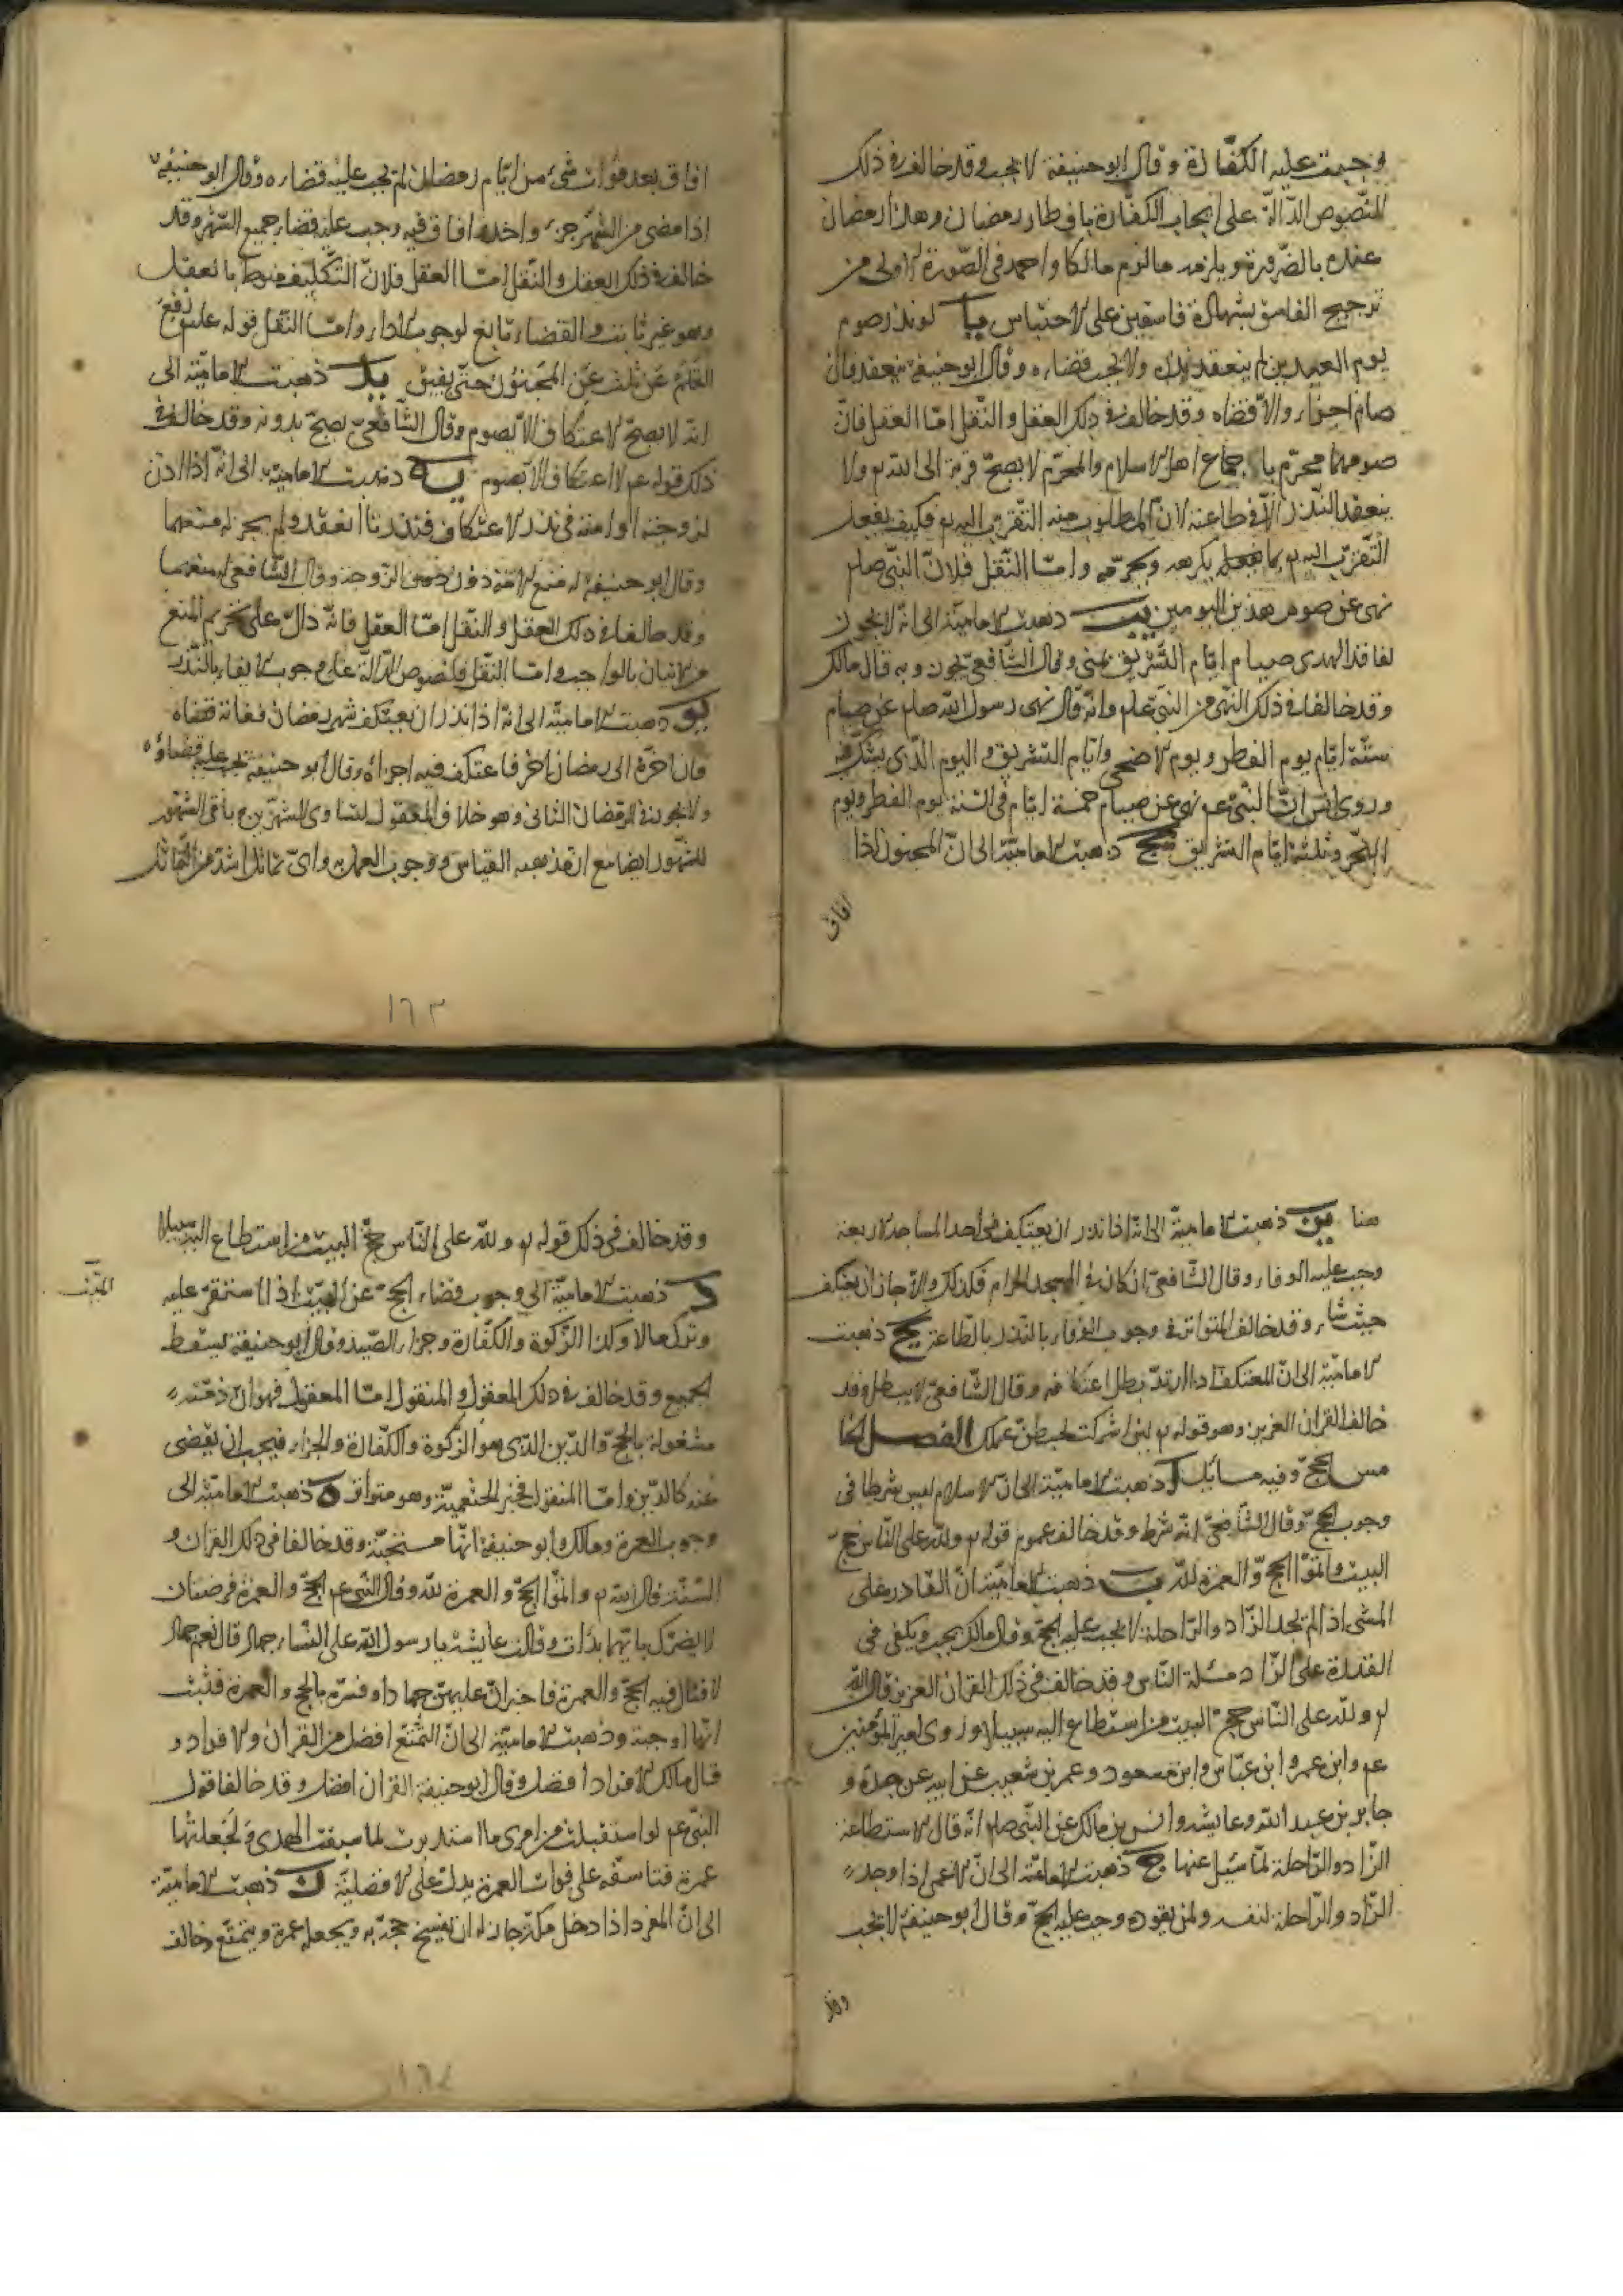 وجبت عليه الكفّارة وقال ابو حنيفة لا تجب وقد خالف في ذلك
النصوص الدالّة على ايجاب الكفّارة بافطار رمضان وهذا رمضان
عنده بالضرورة ويلزمه ما لزم مالكا واحمد في الصّورة الاولى من
ترجيح الفاسق بشهادة فاسقين على الاحتباس يا لو نذر صوم
يوم العيدين لم ينعقد نذره ولا يجب قضاءه وقال ابو حنيفة ينعقد فان
صام اجزاء والّا قضاه وقد خالف في ذلك العقل والنّقل امّا العقل فانّ
صومهما محرّم باجماع اهل الاسلام والمحرّم لا يصحّ قربة الى الله تع ولا
ينعقد النّذر الّا في طاعته لانّ المطلوب منه التقرّب اليه تع فكيف يفعل
التّقرّب اليه تع بما يكرهه ويحرّمه وامّا النّقل فلانّ النبّي صلم
نهى عن صوم هذين اليومين يب ذهبت الاماميّة الى انّه لا يجوز
لفاقد الهدى صيام ايّام التّشريق بمنى وقال الشّافعي يجوز وبه قال مالك
وقد خالفا في ذلك النّهى من النبّي علم وانّه قال نهى رسول الله صلم عن صيام
ستّة ايّام يوم الفطر ويوم الاضحى وايّام التشريق واليوم الّذى يشكّ فيه
وروى انس انّ النبّي عم نهى عن صيام خمسة ايّام في السّنة يوم الفطر ويوم
النّحر وثلثة ايّام التشريق يج ذهبت الاماميّة الى انّ المجنون اذا
افاق
افاق بعد فوات شيء من ايّام رمضان لم يجب عليه قضاءه وقال ابو حنيفة
اذا مضى من الشّهر جزء واحد افاق فيه وجب عليه قضاء جميع الشّهر وقد
خالف في ذلك العقل والنّقل امّا العقل فلانّ التّكليف منوط بالعقل
وهو غير ثابت والقضاء تابع لوجوب الاداء وامّا النّقل قوله علم رفع
القلم عن ثلث عن المجنون حتّى يفيق يد ذهبت الاماميّة الى
انّه لا يصحّ الاعتكاف الّا بصوم وقال الشّافعي يصحّ بدونه وقد خالف في
ذلك قوله عم لا اعتكاف الّا بصوم يه ذهبت الاماميّة الى انّه اذا اذن
لزوجته او امته في نذر الاعتكاف فنذرتا انعقد ولم يجز له منعهما
وقال ابو حنيفة له منع الامة دون الزّوجة وقال الشّافعي له منعهما
وقد خالفا في ذلك العقل والنّقل امّا العقل فانّه دالّ على تحريم المنع
من الاتيان بالواجب وامّا النّقل فلنصوص الدّالة على وجوب الايفاء بالنّذر
يو ذهبت الاماميّة الى انّه اذا نذر ان يعتكف شهر رمضان ففاته قضاه
فان اخّره الى رمضان اخر فاعتكف فيه اجزاه وقال ابو حنيفة يجب عليه قضاؤه
ولا يجوز في الرمضان الثانى وهو خلاف المعقول لتساوى الشهرين ع باقى الشهور
للشهور ايضا مع انّ مذهبه القياس ووجوب العمل به واىّ تماثل اشدّ من التماثل
١٦٣
هنا يز ذهبت الاماميّة الى انّه اذا نذر ان يعتكف في احد المساجد الاربعة
وجب عليه الوفاء وقال الشّافعي ان كان في المسجد الحرام فكذلك والّا جاز ان يعتكف
حيث شاء وقد خالف المتواتر في وجوب الوفاء بالنذر بالطّاعة يح ذهبت
الاماميّة الى انّ المعتكف اذا ارتدّ بطل اعتكافه وقال الشّافعي لا يبطل وقد
خالف القران العزيز وهو قوله تع لئن اشركت ليحبطنّ عملك الفصل الخا
مس الحجّ وفيه مسائل آ ذهبت الاماميّة الى انّ الاسلام ليس شرطا في
وجوب الحجّ وقال الشّافعي انّه شرط وقد خالف عموم قوله تع ولله على النّاس حجّ
البيت واتمّوا الحجّ والعمرة لله ب ذهبت الاماميّة انّ القادر على
المشى اذا لم يجد الزّاد والرّاحلة لا يجب عليه الحجّ وقال مالك يجب ويكفى في
القدرة على الزّاد مسئلة النّاس وقد خالف في ذلك القران العزيز قال الله
تع ولله على النّاس حجّ البيت من استطاع اليه سبيلا وروى امير المؤمنين
عم وابن عمر وابن عبّاس وابن مسعود وعمر بن شعيب عن ابيه عن جدّه و
جابر بن عبد الله وعايشه وانس بن مالك عن النّبي صلم انّه قال الاستطاعة
الزّاد والرّاحلة لمّا سئل عنها ج ذهبت الاماميّة الى انّ الاعمى اذا وجد
الزّاد والرّاحلة لنفسه ولمن يقوده وجب عليه الحجّ وقال ابو حنيفة لا تجب
وقد
وقد خالف في ذلك قوله تع ولله على النّاس حجّ البيت من استطاع اليه سبيلا
د ذهبت الاماميّة الى وجوب قضاء الحجّ عن الميّت اذا استقرّ عليه
الميّت
وترك مالا وكذا الزّكوة والكفّارة وجزاء الصّيد وقال ابو حنيفة يسقط
الجميع وقد خالف في ذلك المعقول والمنقول امّا المعقول فهو انّ ذمّته
مشغولة بالحجّ والدّين الّذى هو الزكوة والكفّارة والجزاء فيجب ان يقضى
عنه كالدّين وامّا المنقول فخبر الخثعميّة وهو متواتر ه ذهبت الاماميّة الى
وجوب العمرة ومالك وابو حنيفة انّها مستحبّة وقد خالفا في ذلك القران و
السّنّة قال الله تع واتمّوا الحجّ والعمرة لله وقال النبّي عم الحجّ والعمرة فرضتان
لا يضرّك بايّهما بدات وقالت عايشة يا رسول الله على النّساء جهاد قال نعم جهاد
لا قتال فيه الحجّ والعمرة فاخبر انّ عليهنّ جهادا وفسّره بالحجّ والعمرة فثبت
انّها واجبة و ذهبت الاماميّة الى انّ التمتّع افضل من القران والافراد و
قال مالك الافراد افضل وقال ابو حنيفة القران افضل وقد خالفا قول
النبّي عم لو استقبلت من امرى ما استدبرت لما سقت الهدى ولجعلتها
عمرة فتاسّفه على فوات العمرة يدلّ على الافضليّة ز ذهبت الاماميّة
الى انّ المفرد اذا دخل مكّة جاز له ان يفسخ حجّه ويجعله عمرة ويتمتّع وخالف
١٦٤